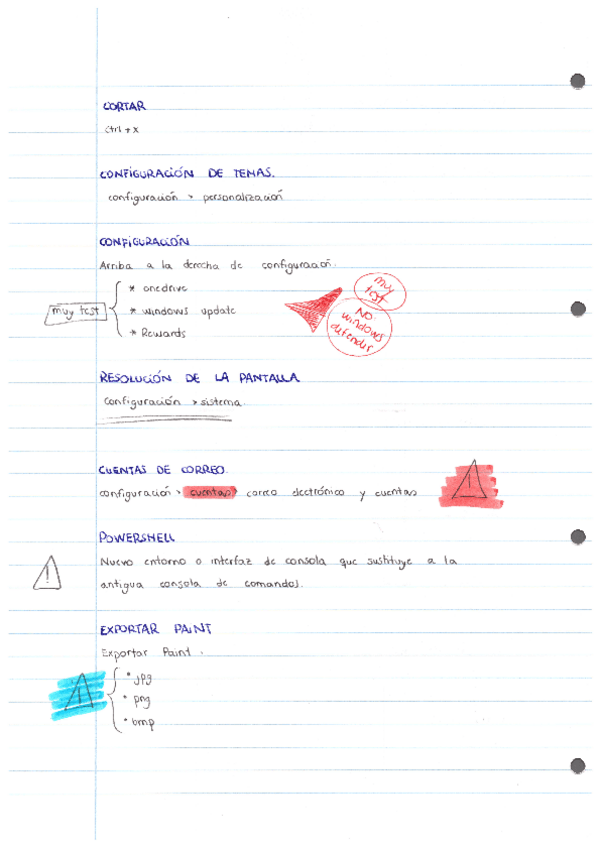 CORTAR
ctrl + x
CONFIGURACIÓN DE TEMAS.
configuración > personalización
CONFIGURACIÓN
Arriba a la derecha de configuración.
muy test
* onedrive
* windows update
* Rewards
muy test
NO windows defender
RESOLUCIÓN DE LA PANTALLA
configuración > sistema.
CUENTAS DE CORREO.
configuración > cuentas > correo electrónico y cuentas
!
POWERSHELL
Nuevo entorno o interfaz de consola que sustituye a la
!
antigua consola de comandos.
EXPORTAR PAINT
Exportar Paint.
!
* jpg
* png
* bmp